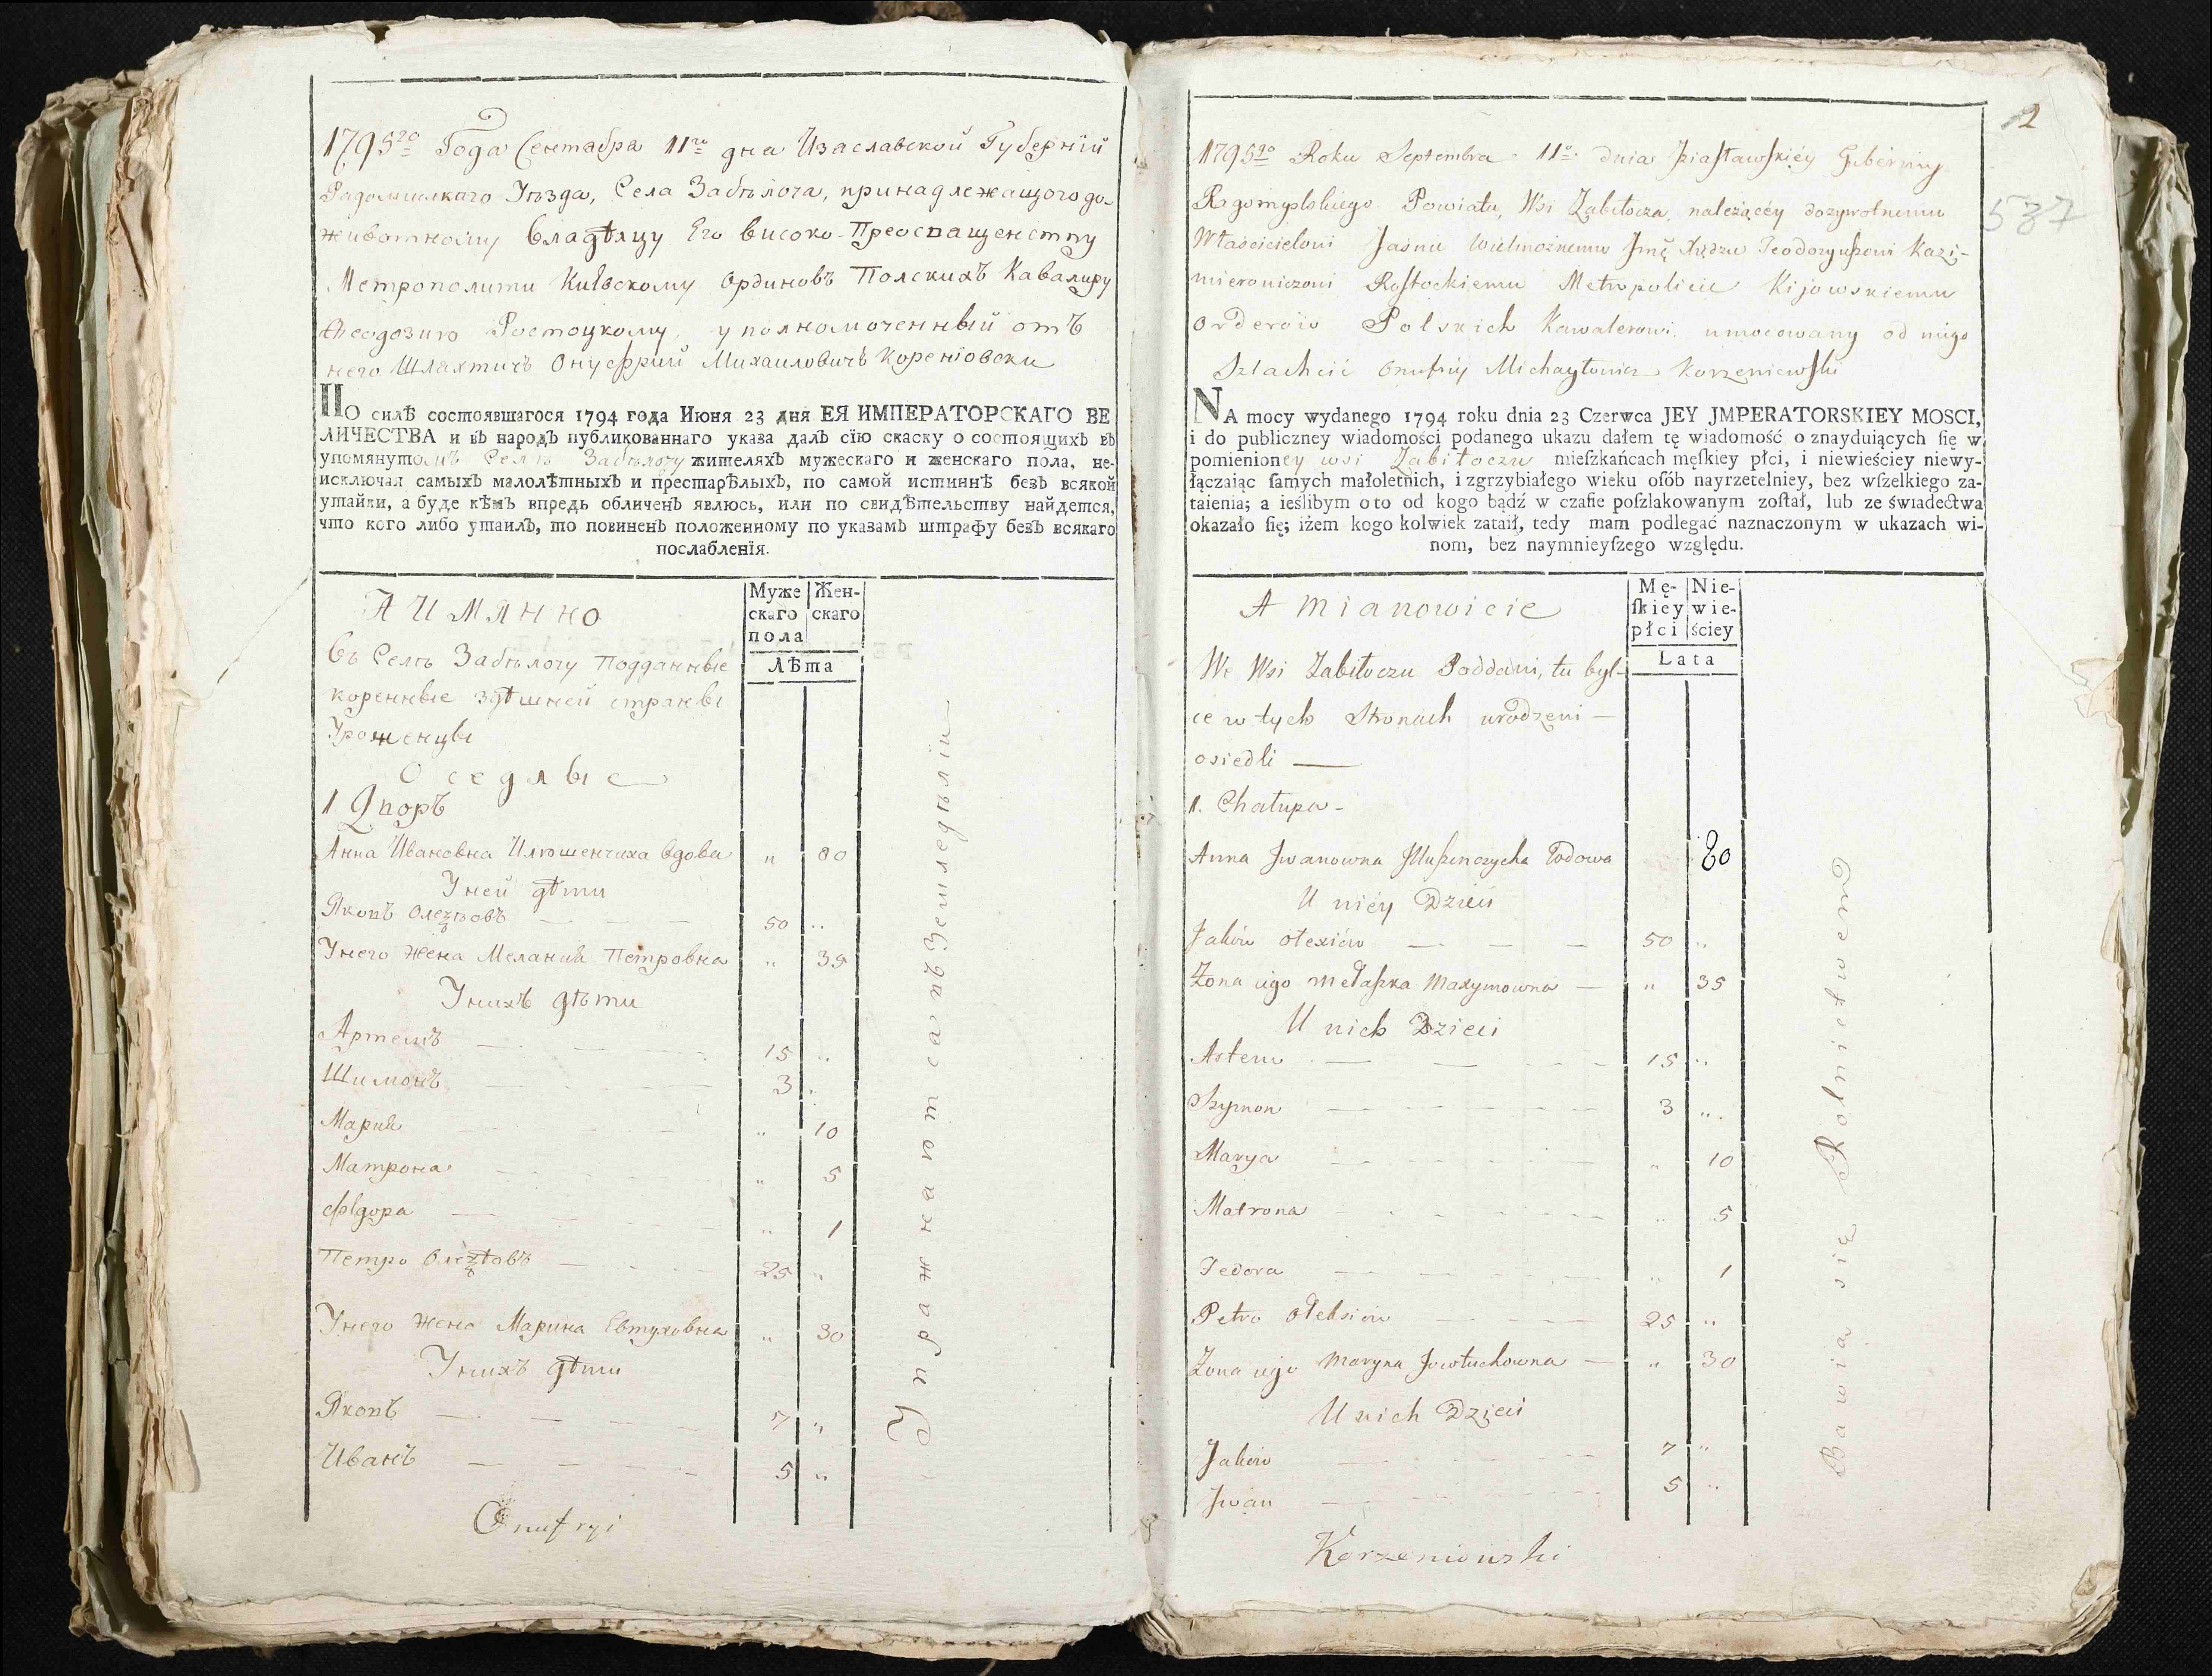 1795го Года Сентабра 11го дня Изаславской Губернии
Радомислкаго Уѣзда, Села Забѣлоча, принадлежащого до-
животному Владѣлцу Его Високо-Преосвященству
Метрополити Киевскому Ординовъ Полскихъ Кавалиру
Феодозию Ростоцкому, уполномоченный отъ
него Шляхтичъ Онуфрий Михаиловичъ Корениовски
ПО силѣ состоявшагося 1794 года Июня 23 дня ЕЯ ИМПЕРАТОРСКАГО ВЕ
ЛИЧЕСТВА и въ народъ публикованнаго указа далъ сїю скаску о состоящихъ въ
упомянутомъ Селѣ Забѣлочу жителяхъ мужескаго и женскаго пола, не-
исключая самыхъ малолѣтныхъ и престарѣлыхъ, по самой истиннѣ безъ всякой
утайки, а буде кѣмъ впредь обличенъ явлюсь, или по свидѣтельству найдется,
что кого либо утаилъ, то повиненъ положенному по указамъ штрафу безъ всякаго
послабленїя.
А ИМЯННО
Муже
скаго
пола
Жен-
скаго
Лѣта
Въ Селѣ Забѣлочу Подданные
коренные здѣшней страны
Уроженцы
Оседлые
1 Дворъ
Анна Ивановна Илюшенчиха вдова " 80
У ней дѣти
Яковъ Олеѯѣовъ — — — 50 "
У него жена Мелания Петровна " 35
У нихъ дѣти
Артемъ — — — 15 "
Шимонъ — — — 3 "
Мария — — — " 10
Матрона — — — " 5
Фѣдора — — — " 1
Петро Олеѯѣовъ — — — 25 "
У него жена Марина Евтуховна " 30
У нихъ дѣти
Яковъ — — — 7 "
Иванъ — — — 5 "
Упражнаются въ Земледѣлїи
Onufryi
2
537
1795go Roku Septembra 11o dnia Iziasławskiéy Gubérniy
Radomyslskiego Powiatu, Wsi Zabiłocza, należącéy dożywotnemu
Włascicielowi Jasnu Wielmożnemu Jmć Xiędzu Teodozyuszowi Kazi-
mierowiczowi Rostockiemu Metropolicie Kijowskiemu
Orderów Polskich Kawalerowi umocowany od niego
Szlachcic Onufriy Michayłowicz Korzeniewski
NA mocy wydanego 1794 roku dnia 23 Czerwca JEY JMPERATORSKIEY MOSCI,
i do publiczney wiadomości podanego ukazu dałem tę wiadomość o znayduiących ſię w
pomienioney wsi Zabiłoczu mieſzkańcach męſkiey płci, i niewieściey niewy-
łączaiąc ſamych małoletnich, i zgrzybiałego wieku oſób nayrzetelniey, bez wſzelkiego za-
taienia; a ieślibym o to od kogo bądź w czaſie poſzlakowanym zoſtał, lub ze świadectwa
okazało ſię; iżem kogo kolwiek zataił, tedy mam podlegać naznaczonym w ukazach wi-
nom, bez naymnieyſzego względu.
A mianowicie
Mę-
ſkiey
płci
Nie-
wie-
ściey
Lata
We Wsi Zabiłoczu Poddani, tu byl-
ce w tych Stronach urodzeni —
osiedli —
1. Chałupa -
Anna Jwanowna Jlluszenczycha Wdowa 80
U niéy Dzieci
Jaków Olexiów — — — 50 "
Żona iego Mełaszka Maxymowna — " 35
U nich Dzieci
Artem — — — 15 "
Szymon — — — 3 "
Marya — — — " 10
Matrona — — — " 5
Fedora — — — " 1
Petro Ołeksiow — — — 25 "
Żona iego Maryna Jowtuchowna — " 30
U nich Dzieci
Jaków — — — 7 "
Jwan — — — 5 "
Bawia się Rolnictwem
Korzeniowski